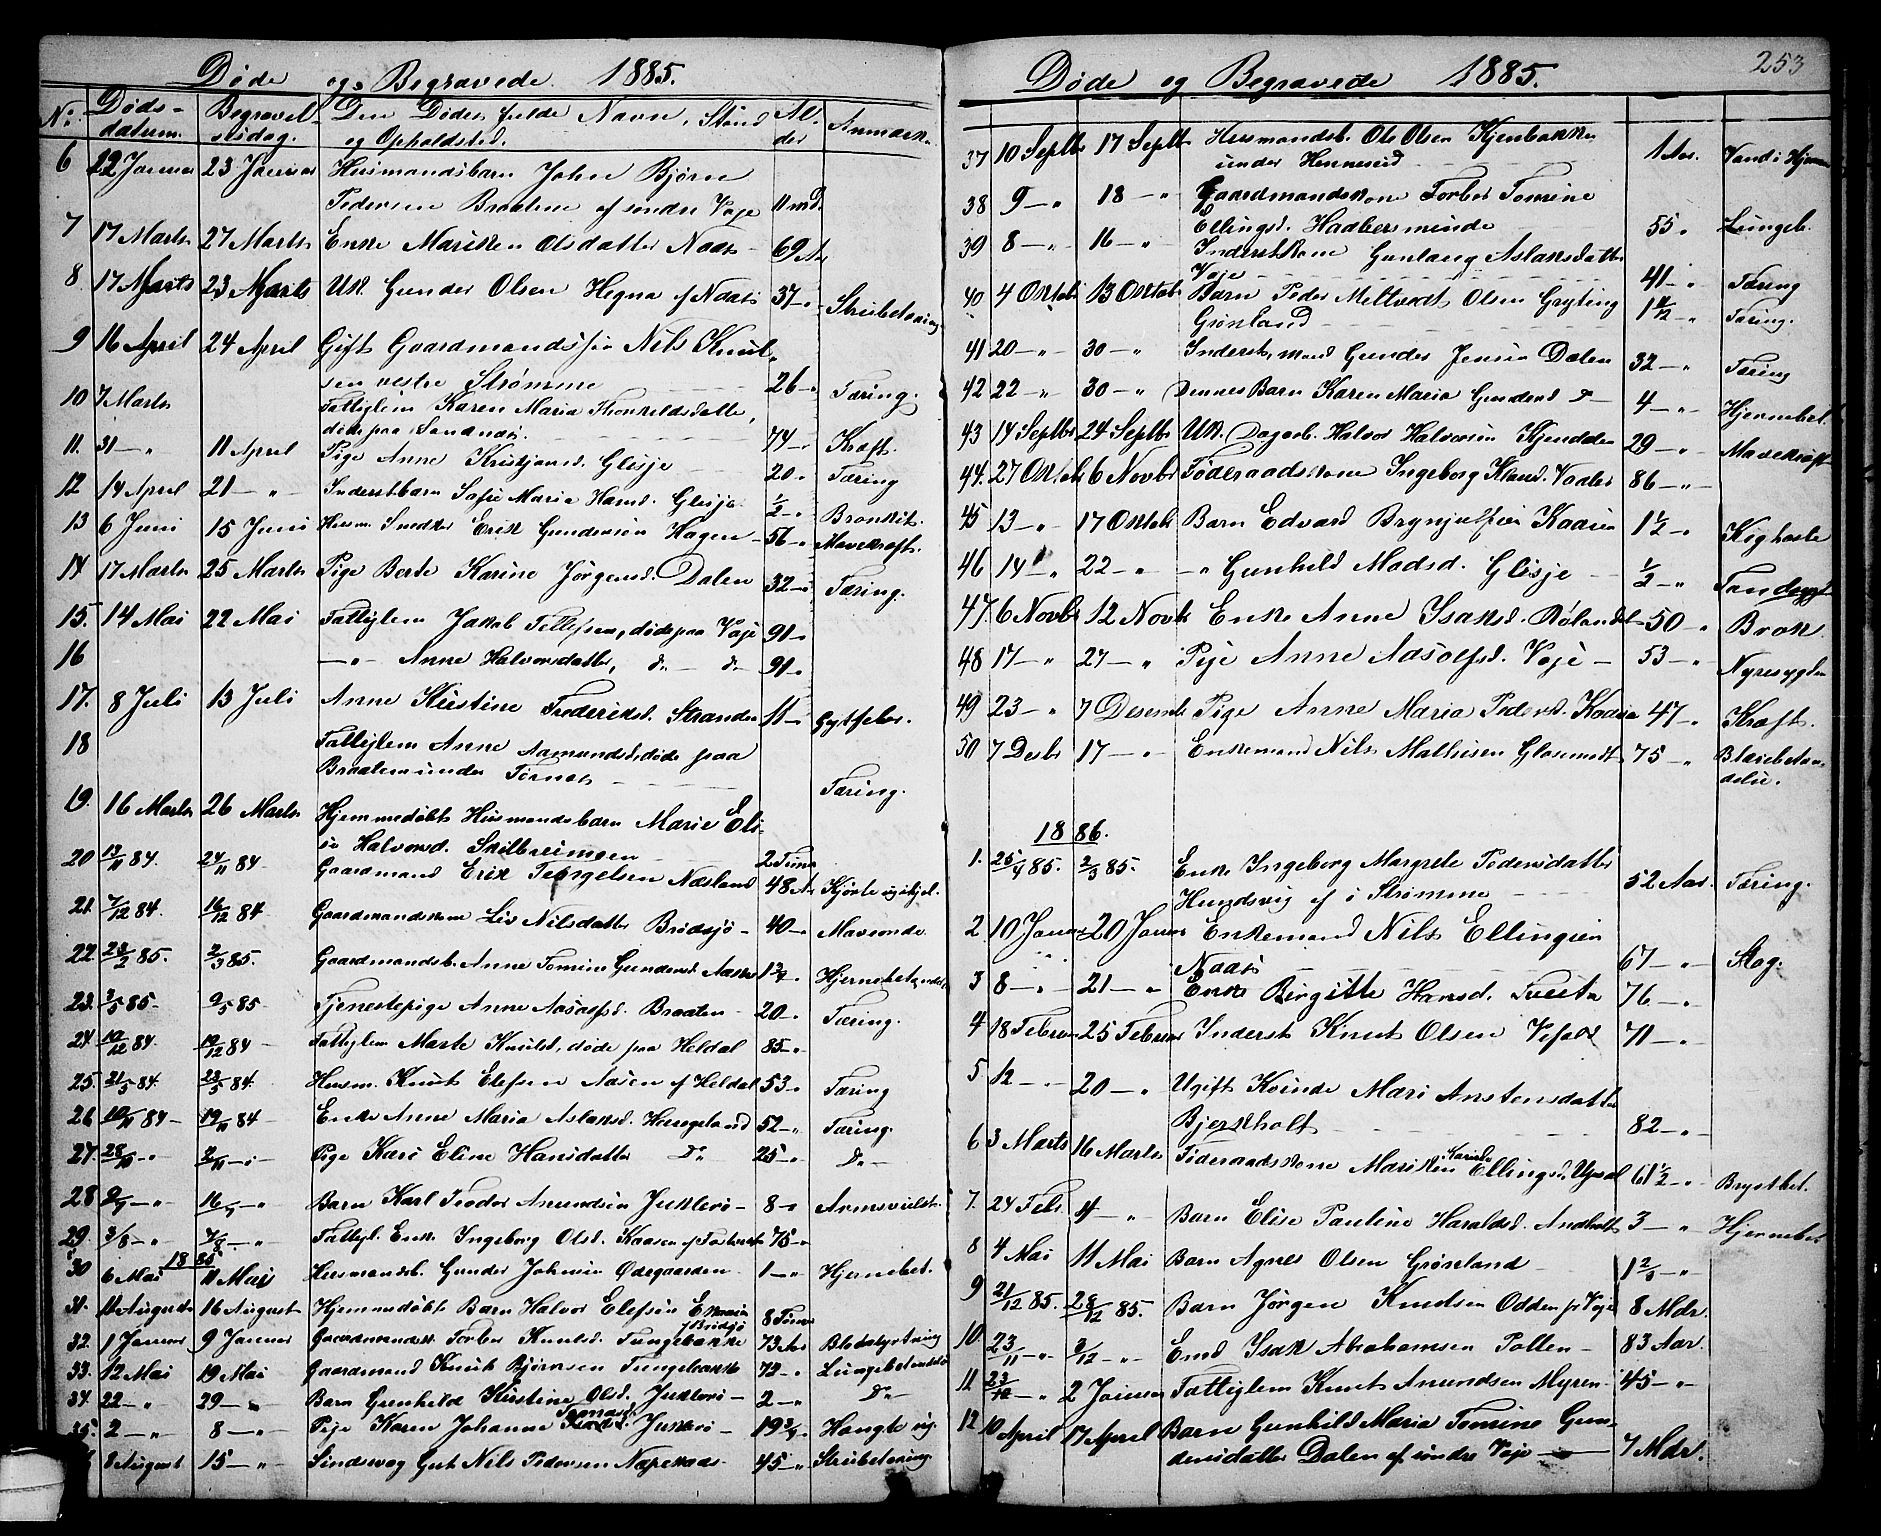 Døde og Begravede 1885.
No. Døds-datum. Begravel-sesdag. Den Dødes fulde Navn, Stand og Opholdsted. Al-der Anmærk.
6 22 Januar 23 Januar Husmandsbarn John Bjørn
Pedersen Braatene af søndre Vaje 11 md.
7 17 Marts 27 Marts Enke Mariken Olsdatter Naas 69 A
8 17 Marts 23 Marts Uk. Gunder Olsen Hegna af Naas 37 - Strubetæring
9 16 April 24 April Gift Gaardmandssøn Nils Knut-
sen vestre Strømme 26 - Tæring.
10 7 Marts Fattiglem Karen Maria Thorkeldsdatter,
døde paa Sandnæs. 74 - Kræft.
11. 31 - " 11 April Pige Anne Kristjansd. Glisje 20 - Tæring
12 14 April 21 - " Inderstbarn Maria Hansd. Glisje ½ - Bronkit.
13 6 Juni 15 Juni Husm. Snedker Erik Gundersøn Hagen - 56 - Mavekræft.
14 17 Marts 25 Marts Pige Berte Karine Jørgensd. Dalen 32 - Tæring.
15. 14 Mai 22 Mai Fattiglem Jakob Tellefsen, døde paa Vaje 91 -
16 - " - Anne Halvorsdatter, do - do - 91 -
17. 8 Juli 13 Juli Anne Kristine Frederiksd. Strander 11 - Gytfeber.
18 Fattiglem Anne Aamundsd. døde paa
Braatemunder Tørnes Tæring.
19. 16 Marts 26 Marts Hjemmedøbt Husmandsbarn Marie Eli-
se Halvorsd. Skilbreimoen 2 Timer
20 13/11 84. 24/11 84 Gaardmand Erik Tengelsen Næsland 48 A Kjørte sig ihjel.
21. 7/12 84. 16/12 84 Gaardmandskone Liv Nilsdatter Brødsjø - 40 - Maveonde
22. 23/2 85. 2/3 85. Gaardmandsb. Anne Tomine Gundersd. Aasen 1¾ - Hjernebetændelse
23. 2/5 85 9/5 85 Tjenestepige Anne Aasolfsd. Braaten - 20 - Tæring.
24. 10/12 84. 19/12 84 Fattiglem Marte Knutsd. døde paa Heldal 85 -
25. 21/5 84 23/5 84. Husm. Knut Elefsen Aasen af Heldal 53 - Tæring
26 10/11 84 - 19/11 84 - Enke Anne Maria Aslaksd. Haugeland 52 - Tæring.
27. 28/10 - " 2/11 - " Pige Kari Eline Hansdatter Do 25 - Do -
28 9/9 - " 16/9 - " Barn Karl Teodor Amundsen Jusklerø - 8 -
29. 3/8 - " 7/8 - " Fattigl. Enke Ingeborg Olsd. Kaasen 75 -
1885
30 6 Mai 11 Mai Husmandsb. Gunder Johnsen Ødegaarden - 1 - Hjernebet.
31. 11 August 16 August Hjemmedøbt Barn Halvor Elefsen
Brødsjø 8 Timer
32. 1 Januar 9 Januar Gaardmandsk. Torber Knutsd. Tungebakke 73 Aar Blodstyrtning
33. 12 Mai 19 Mai Gaardmand Knut Bjørnsen Tungebakke 72 - Lungebetændelse
34. 22 - " 29 - " Barn Gunhilde Kirstine Olsd. Jusklerø - 2 - Do -
35. 2 - " 8 - " Pige Karen Johanne Jusklerø - 19¾ - Hængte sig.
8 August 15 - " Sindsvag Gut Nils Pedersen 45 - Strubetæring.
253
Døde og Begravede 1885.
37 10 Septbr 17 Septbr Husmandsb. Ole Olsen Kjenbakken
under Henneseid 1 Aar. Vand i Hjernen
38 9 - " 18 - " Gaardmandskone Torber Tomine
Ellingsd. Hadbersminde 55 - Lungeb.
39 8 - " 16 - " Inderstkone Gunlaug Aslaksdatter
Vaje 41 - Tæring
40 4 Oktob 13 Oktob Barn Peder Meltvedt Olsen Gryting
Grønland - Tæring.
41 20 - " 30 - " Inderst, mand Gunder Jensen Dalen 32 - Tæring
42 22 - " 30 - " Dennes Barn Karen Maria Gundersd Do 4 - Hjernebet.
43 14 Septbr 24 Septbr Uk. Dagarb. Halvor Halvorsen Kjendalen 29 - Mavekræft
44. 27 Oktob 6 Novbr Føderaadskone Ingeborg Klausd. Vaaler 86 - "
45 13 - " 17 Oktob Barn Edvard Brynjulfsen Kaasen 1½ - Kighoste
46 14 - " 22 - " - " Gunhild Madsd. Glisje - ½ - Tandsygd
47. 6 Novbr 12 Novb Enke Anne Isaksd. Rølandet 50 - Brok.
48 17 - " 27 - " Pige Anne Aasolfsd. Vaje - 53 - Nyresygdom
49 23 - " 7 Desemb Pige Anne Maria Pedersd. Kaasa 47 - Kræft.
50 7 Desb 17 - " Enkemand Nils Mathisen Glosimodt 75 - Blærebetæn-
delse.
1886.
1. 25/4 85. 2/5 85. Enke Ingeborg Margrete Pedersdatter
Hundsvig af i Strømme 52 Aar. Tæring.
2 10 Januar 20 Januar Enkemand Nils Ellingsen
Naas 67 - Slag.
3 8 - " 21 - " Enke Birgitte Hansd. Tveita 76 - "
4 18 Februar 25 Februar Inderst Knut Olsen Vefald 71 - "
5 12 - " 20 - " Ugift Kvinde Mari Anstensdatter
Bjerkholt 82 - "
6 3 Marts 16 Marts Føderaadskone Mariken Karine Ellingsd. Upsal 61½ - Brystbet.
7. 24 Feb. 4 - " Barn Elise Pauline Haraldsd. Andholt 3 - Hjernebet
8 4 Mai 11 Mai Barn Agnes Olsen Grønland - 1⅔ - "
9 21/12 85. 28/12 85. Barn Jørgen Knudsen Odden Vaje 8 Mdr.
10. 23/11 - " 2/12 - " Isak Abrahamsen Pollen - 83 Aar.
11 23/12 - " 2 Januar Fattiglem Knut Amundsen Myren 45 - "
12 10 April 17 April Barn Gunhild Maria Tomine Gun-
dersdatter Dalen af søndre Vaje 7 Mdr.